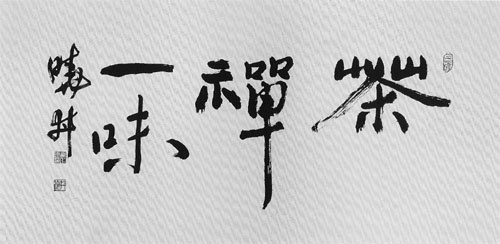 茶禪一味
曉